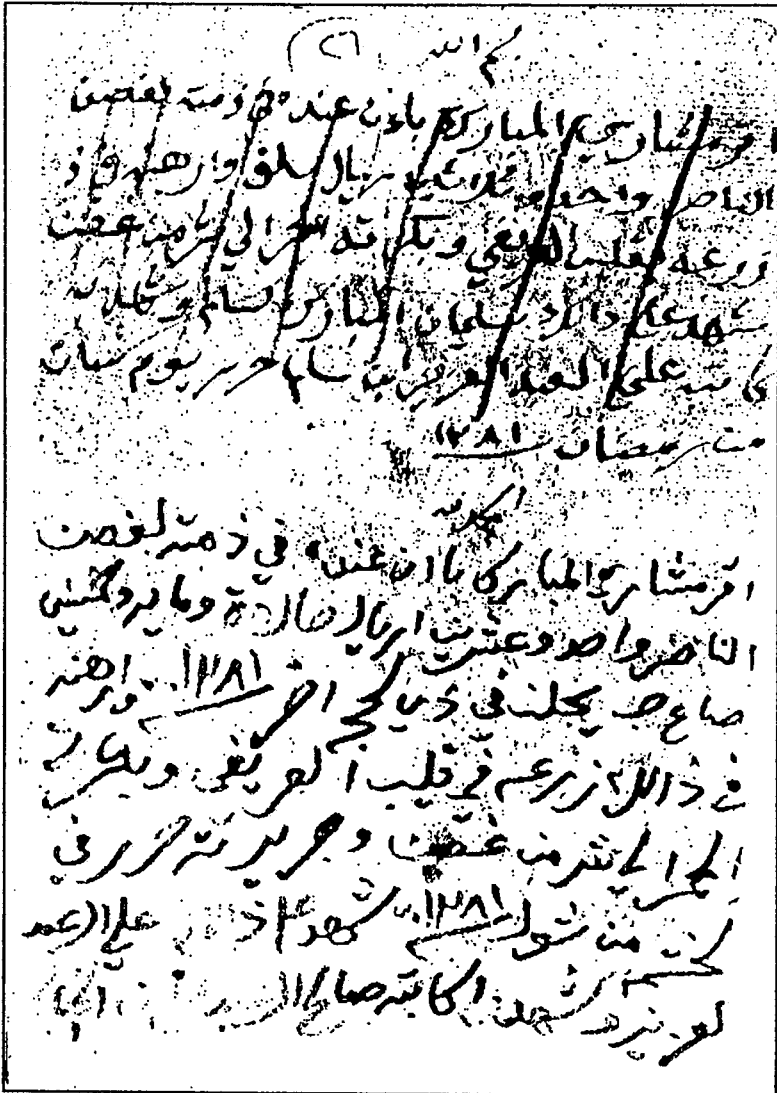 ٢٦
اقر مشاري المبارك بان عنده في ذمته لغصن
الناصر واحد وثلاثين ريال سلف وارهنه في ذ
زرعه بقليب العريفي وبكرته الحمرا لي شرا من غصن
شهد على ذالك سليمان المبارك
كاتبه علي العبد العزيز ابن سالم حرر يوم ثمان
من رمضان ١٢٨١
الحمد لله
اقر مشاري المبارك باان عنده في ذمته لغصن
الناصر واحد وعشرين اريال ومايه وخمسين
صاع حب يحلن في ذي لحجه اخر ١٢٨١ وارهنه
في ذالك زرعه في قليب العريفي وبكرته
الحمرا لي شر من غصن وجريرته حرر في
من شول ١٢٨١ شهد على علي العبد
لعزيز وشهد به كاتبه صالح